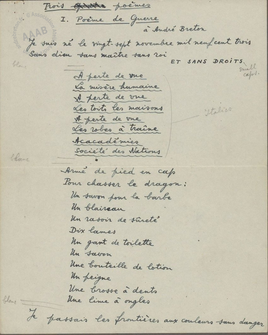 Trois poèmes
I. Poème de Guerre
à André Breton
Je suis né le vingt-sept novembre mil neuf cent trois
Sans dieu sans maître sans roi
ET SANS DROITS.
A perte de vue
La misère humaine
A perte de vue
Les toits les maisons
A perte de vue
Les robes à traîne
Acacadémies
Société des Nations
Italics
Armé de pied en cap
Pour chasser le dragon :
Un savon pour la barbe
Un blaireau
Un rasoir de sûreté
Dix lames
Un gant de toilette
Un savon
Une bouteille de lotion
Un peigne
Une brosse à dents
Une lime à ongles
Je passais les frontières aux couleurs sans danger